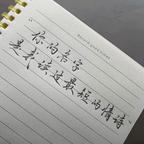 你的名字
是我读过最短的情诗